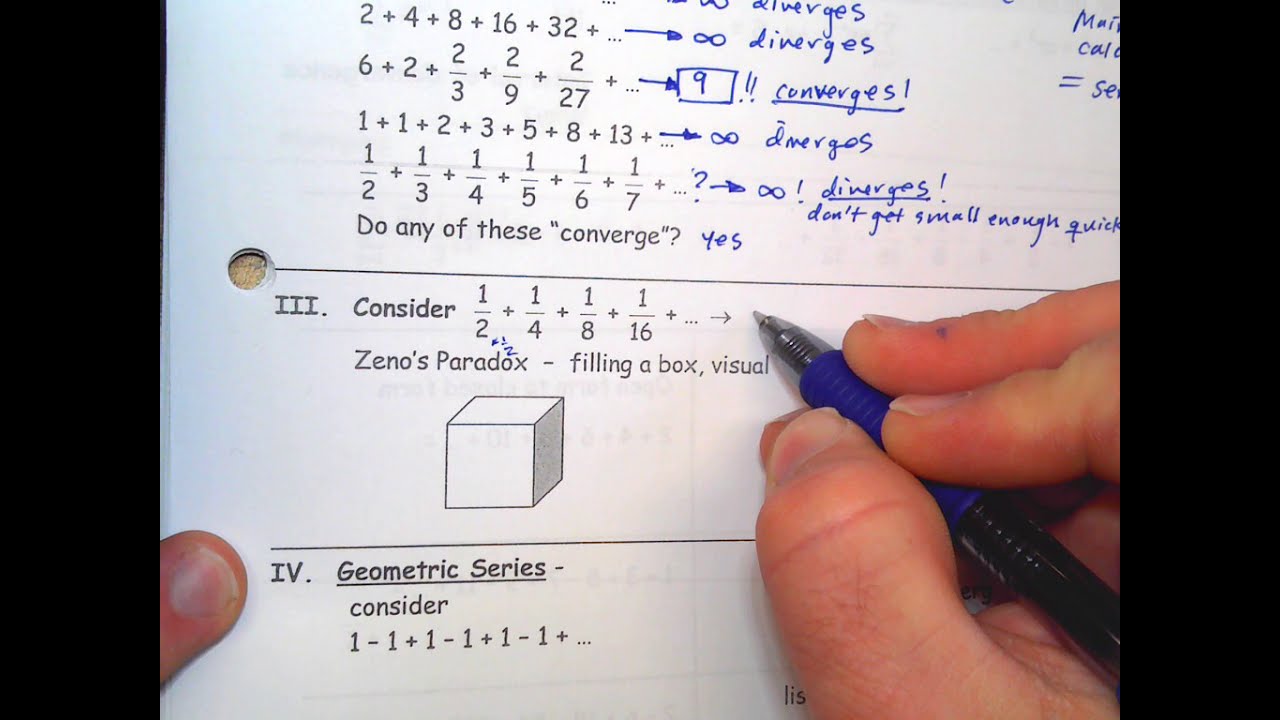 ... diverges
2 + 4 + 8 + 16 + 32 + ... → ∞ diverges
6 + 2 + 2/3 + 2/9 + 2/27 + ... → 9 !! converges!
1 + 1 + 2 + 3 + 5 + 8 + 13 + ... → ∞ diverges
1/2 + 1/3 + 1/4 + 1/5 + 1/6 + 1/7 + ... ? → ∞ ! diverges!
don't get small enough quick
Do any of these "converge"? yes
= ser
III. Consider 1/2 + 1/4 + 1/8 + 1/16 + ... →
Zeno's Paradox - filling a box, visual
IV. Geometric Series -
consider
1 - 1 + 1 - 1 + 1 - 1 + ...
lis